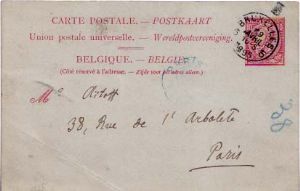 CARTE POSTALE. — POSTKAART
Union postale universelle. — Wereldpostvereeniging.
BELGIQUE. — BELGIË
(Côté réservé à l'adresse. — Zijde voor het adres alleen.)
BRUXELLES
Me Artott
38, Rue de l'Arbalète
Paris
38